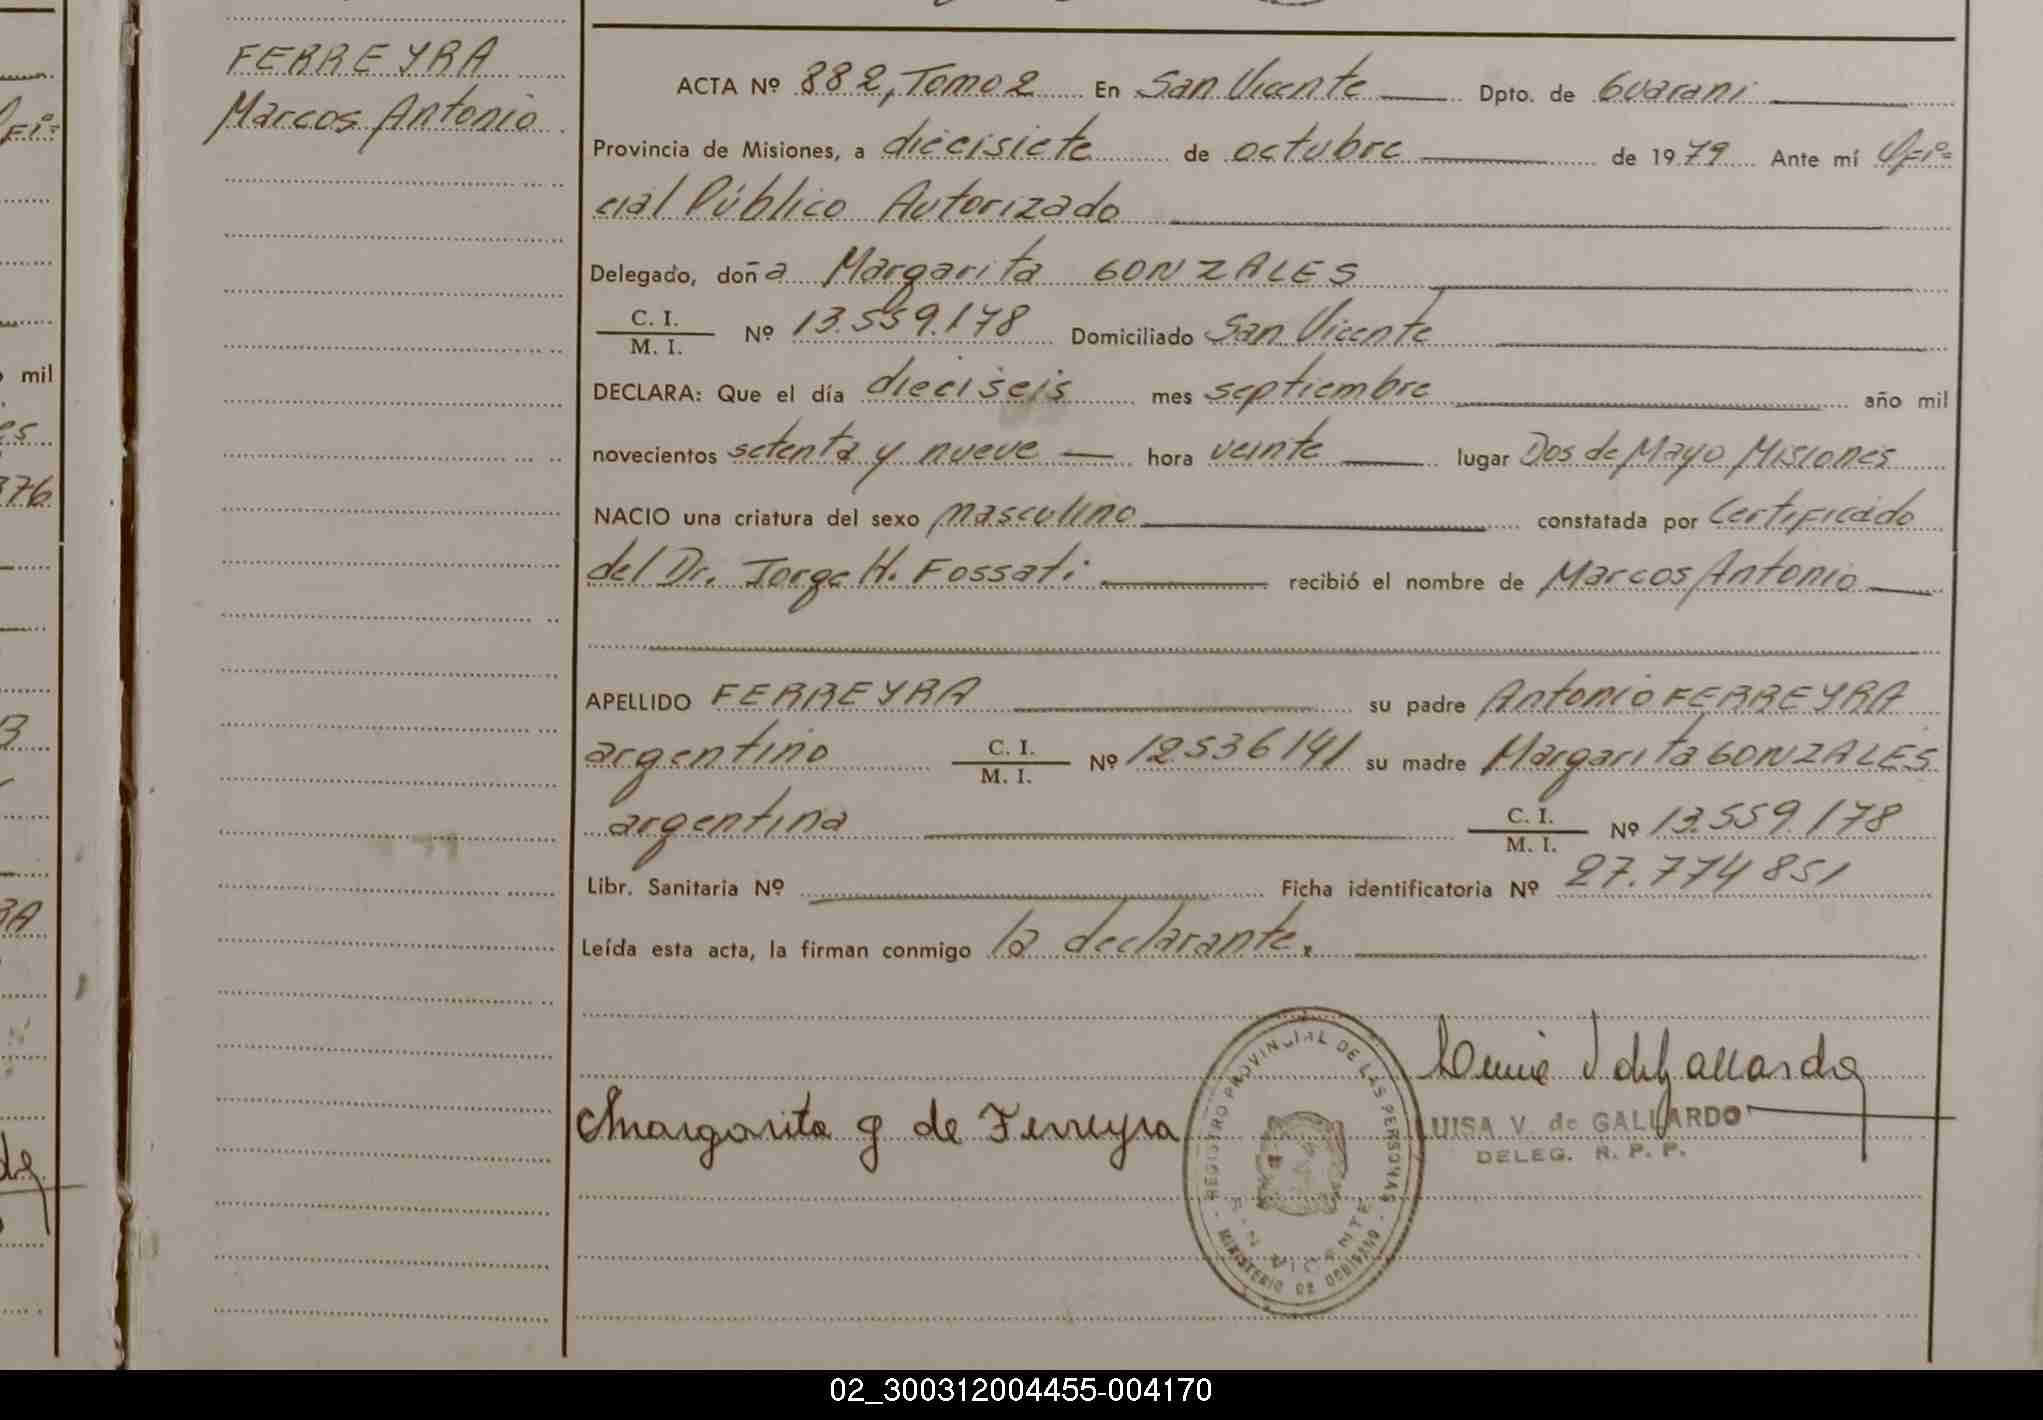 FERREYRA
Marcos Antonio
ACTA Nº 882, Tomo 2 En San Vicente Dpto. de Guarani
Provincia de Misiones, a diecisiete de octubre de 1979 Ante mí Ofi=
cial Público Autorizado
Delegado, doña Margarita GONZALES
C. I.
M. I. Nº 13.559.178 Domiciliado San Vicente
DECLARA: Que el día dieciseis mes septiembre año mil
novecientos setenta y nueve hora veinte lugar Dos de Mayo Misiones
NACIO una criatura del sexo masculino constatada por Certificado
del Dr. Jorge H. Fossati recibió el nombre de Marcos Antonio
APELLIDO FERREYRA su padre Antonio FERREYRA
argentino C. I. M. I. Nº 12536141 su madre Margarita GONZALES
argentina C. I. M. I. Nº 13.559.178
Libr. Sanitaria Nº Ficha identificatoria Nº 27.774851
Leída esta acta, la firman conmigo la declarante.
Margarita g de Ferreyra
REGISTRO PROVINCIAL DE LAS PERSONAS
VICENTE
MINISTERIO DE GOBIERNO
UISA V. de GALLARDO
DELEG. R. P. P.
mil
es
376
02_300312004455-004170